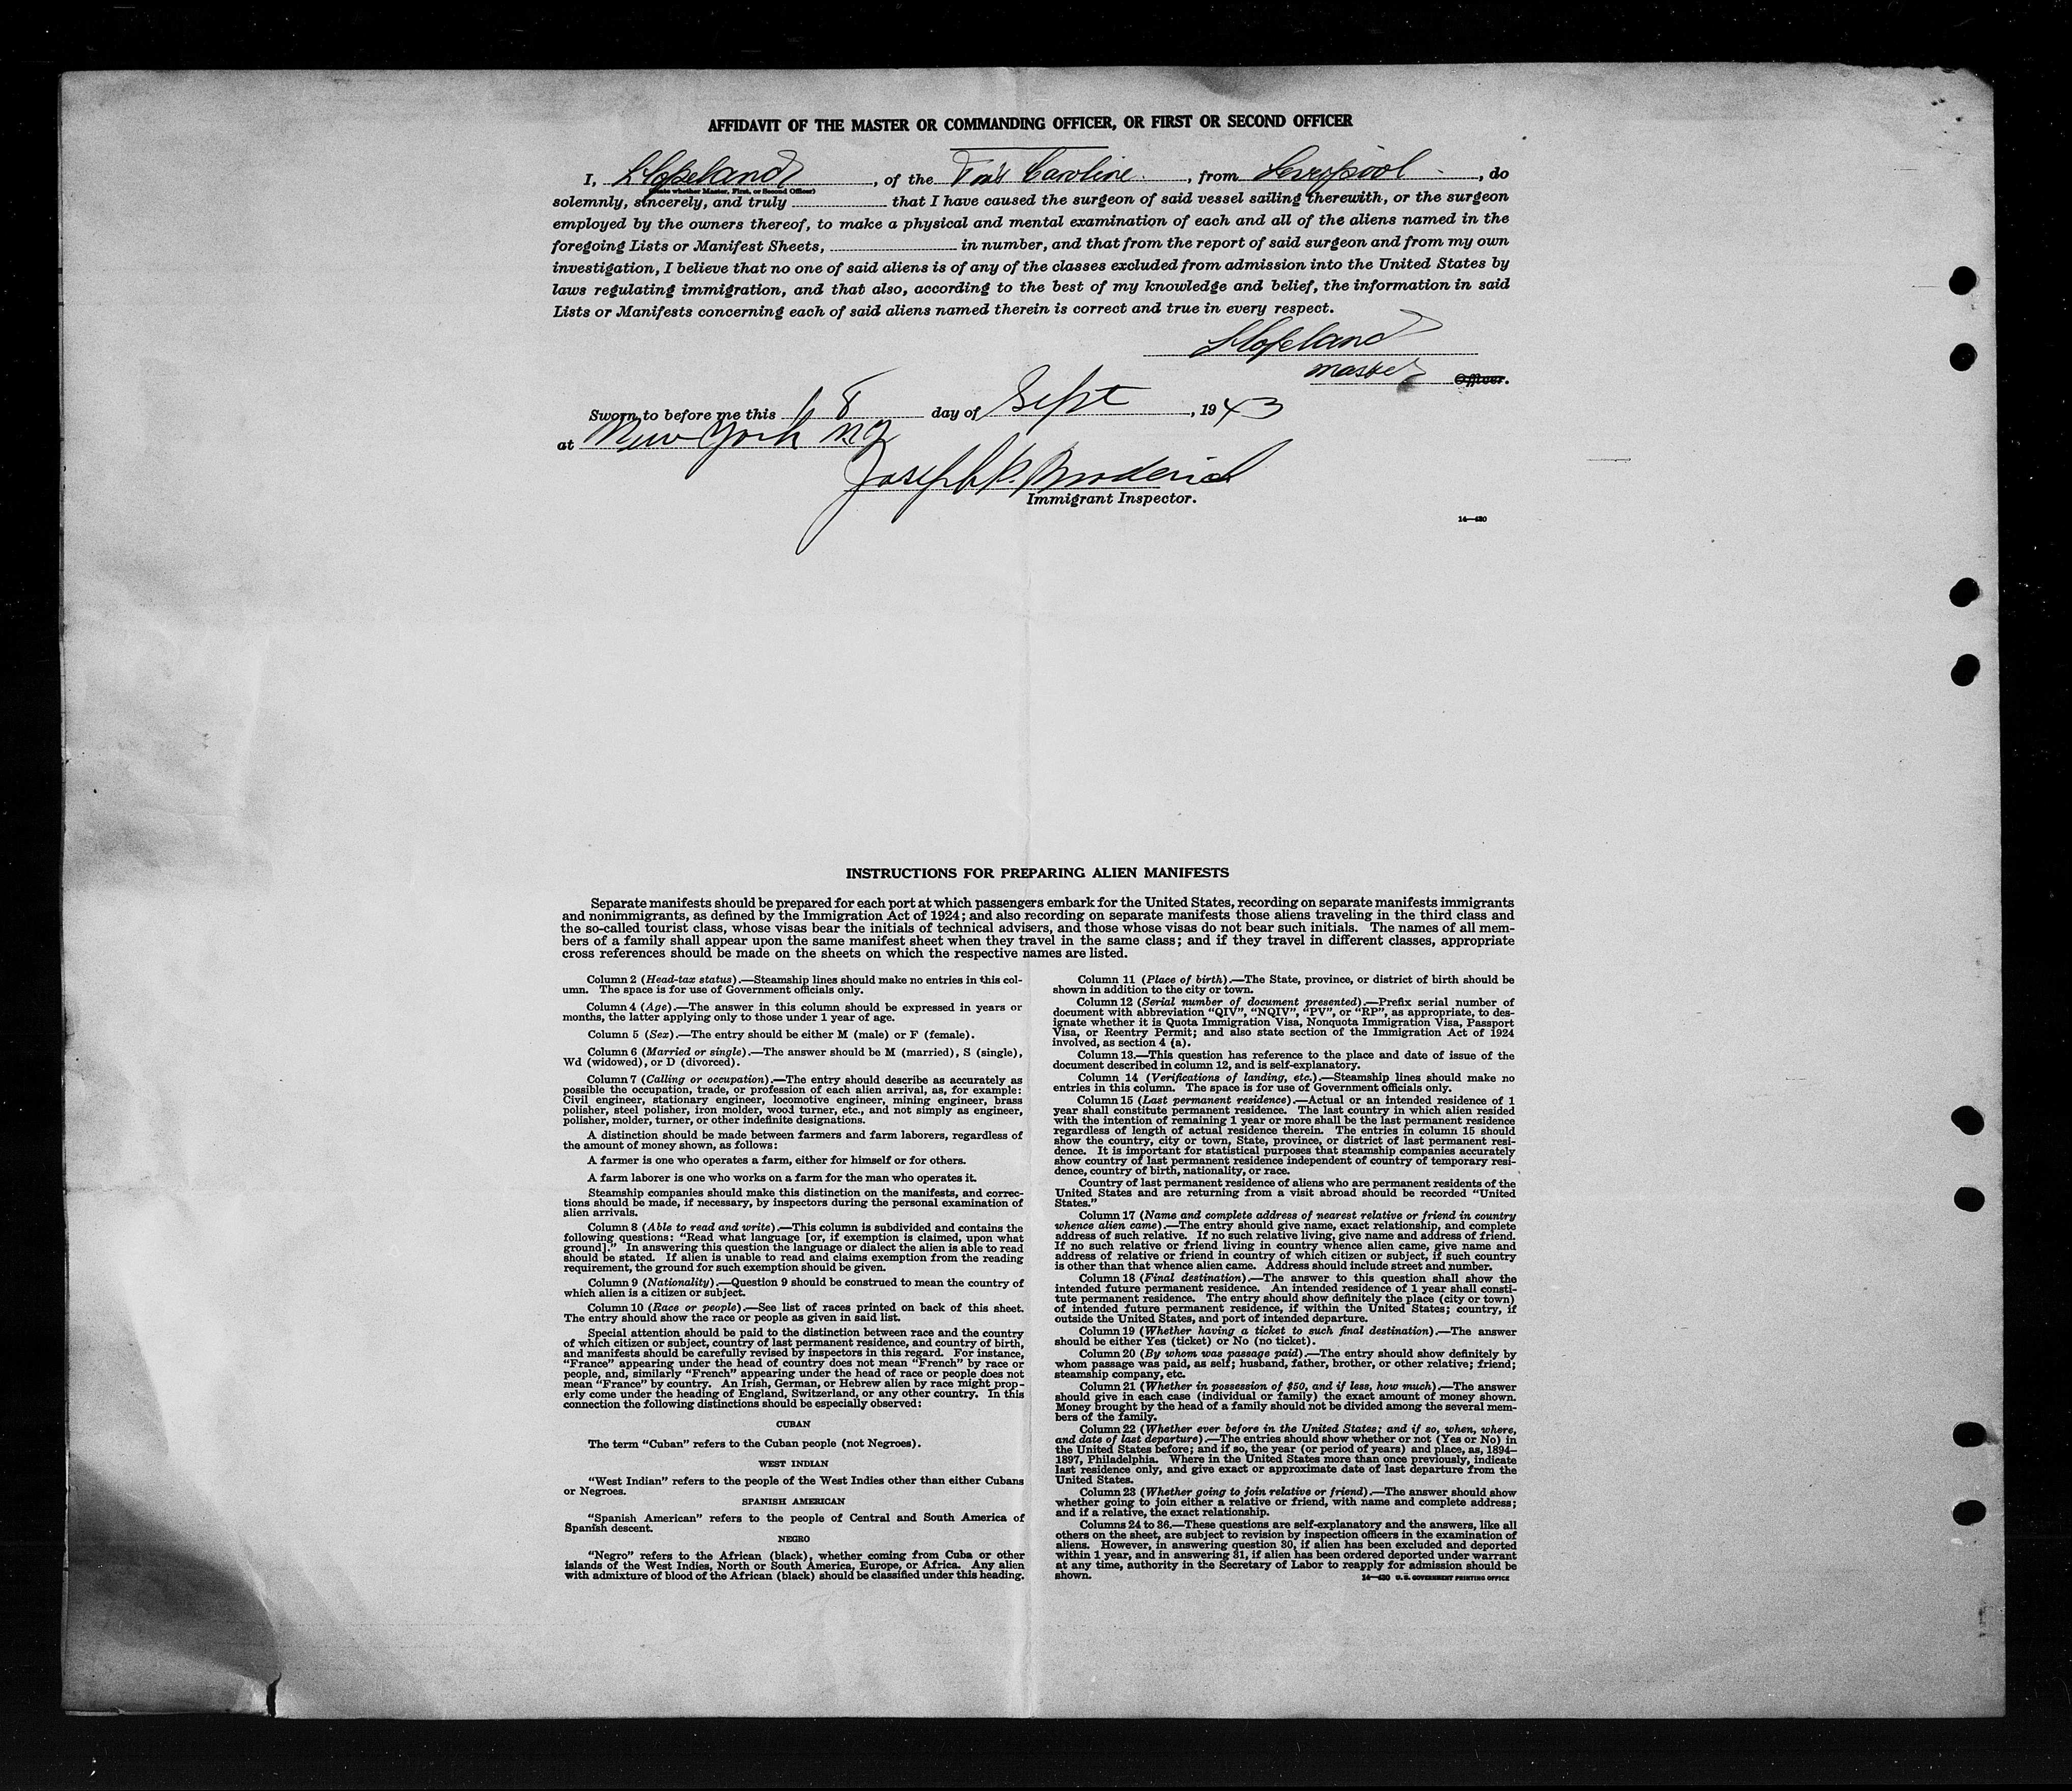 AFFIDAVIT OF THE MASTER OR COMMANDING OFFICER, OR FIRST OR SECOND OFFICER
I, Copeland, of the Fort Caroline, from Liverpool, do
(State whether Master, First, or Second Officer)
solemnly, sincerely, and truly that I have caused the surgeon of said vessel sailing therewith, or the surgeon
employed by the owners thereof, to make a physical and mental examination of each and all of the aliens named in the
foregoing Lists or Manifest Sheets, in number, and that from the report of said surgeon and from my own
investigation, I believe that no one of said aliens is of any of the classes excluded from admission into the United States by
laws regulating immigration, and that also, according to the best of my knowledge and belief, the information in said
Lists or Manifests concerning each of said aliens named therein is correct and true in every respect.
Copeland
master Officer.
Sworn to before me this 8 day of Sept, 1943
at New York NY
Joseph P. Broderick
Immigrant Inspector.
14—420
INSTRUCTIONS FOR PREPARING ALIEN MANIFESTS
Separate manifests should be prepared for each port at which passengers embark for the United States, recording on separate manifests immigrants
and nonimmigrants, as defined by the Immigration Act of 1924; and also recording on separate manifests those aliens traveling in the third class and
the so-called tourist class, whose visas bear the initials of technical advisers, and those whose visas do not bear such initials. The names of all mem-
bers of a family shall appear upon the same manifest sheet when they travel in the same class; and if they travel in different classes, appropriate
cross references should be made on the sheets on which the respective names are listed.
Column 2 (Head-tax status).—Steamship lines should make no entries in this col-
umn. The space is for use of Government officials only.
Column 4 (Age).—The answer in this column should be expressed in years or
months, the latter applying only to those under 1 year of age.
Column 5 (Sex).—The entry should be either M (male) or F (female).
Column 6 (Married or single).—The answer should be M (married), S (single),
Wd (widowed), or D (divorced).
Column 7 (Calling or occupation).—The entry should describe as accurately as
possible the occupation, trade, or profession of each alien arrival, as, for example:
Civil engineer, stationary engineer, locomotive engineer, mining engineer, brass
polisher, steel polisher, iron molder, wood turner, etc., and not simply as engineer,
polisher, molder, turner, or other indefinite designations.
A distinction should be made between farmers and farm laborers, regardless of
the amount of money shown, as follows:
A farmer is one who operates a farm, either for himself or for others.
A farm laborer is one who works on a farm for the man who operates it.
Steamship companies should make this distinction on the manifests, and correc-
tions should be made, if necessary, by inspectors during the personal examination of
alien arrivals.
Column 8 (Able to read and write).—This column is subdivided and contains the
following questions: “Read what language [or, if exemption is claimed, upon what
ground].” In answering this question the language or dialect the alien is able to read
should be stated. If alien is unable to read and claims exemption from the reading
requirement, the ground for such exemption should be given.
Column 9 (Nationality).—Question 9 should be construed to mean the country of
which alien is a citizen or subject.
Column 10 (Race or people).—See list of races printed on back of this sheet.
The entry should show the race or people as given in said list.
Special attention should be paid to the distinction between race and the country
of which citizen or subject, country of last permanent residence, and country of birth,
and manifests should be carefully revised by inspectors in this regard. For instance,
“France” appearing under the head of country does not mean “French” by race or
people, and, similarly “French” appearing under the head of race or people does not
mean “France” by country. An Irish, German, or Hebrew alien by race might prop-
erly come under the heading of England, Switzerland, or any other country. In this
connection the following distinctions should be especially observed:
CUBAN
The term “Cuban” refers to the Cuban people (not Negroes).
WEST INDIAN
“West Indian” refers to the people of the West Indies other than either Cubans
or Negroes.
SPANISH AMERICAN
“Spanish American” refers to the people of Central and South America of
Spanish descent.
NEGRO
“Negro” refers to the African (black), whether coming from Cuba or other
islands of the West Indies, North or South America, Europe, or Africa. Any alien
with admixture of blood of the African (black) should be classified under this heading.
Column 11 (Place of birth).—The State, province, or district of birth should be
shown in addition to the city or town.
Column 12 (Serial number of document presented).—Prefix serial number of
document with abbreviation “QIV”, “NQIV”, “PV”, or “RP”, as appropriate, to des-
ignate whether it is Quota Immigration Visa, Nonquota Immigration Visa, Passport
Visa, or Reentry Permit; and also state section of the Immigration Act of 1924
involved, as section 4 (a).
Column 13.—This question has reference to the place and date of issue of the
document described in column 12, and is self-explanatory.
Column 14 (Verifications of landing, etc.).—Steamship lines should make no
entries in this column. The space is for use of Government officials only.
Column 15 (Last permanent residence).—Actual or an intended residence of 1
year shall constitute permanent residence. The last country in which alien resided
with the intention of remaining 1 year or more shall be the last permanent residence
regardless of length of actual residence therein. The entries in column 15 should
show the country, city or town, State, province, or district of last permanent resi-
dence. It is important for statistical purposes that steamship companies accurately
show country of last permanent residence independent of country of temporary resi-
dence, country of birth, nationality, or race.
Country of last permanent residence of aliens who are permanent residents of the
United States and are returning from a visit abroad should be recorded “United
States.”
Column 17 (Name and complete address of nearest relative or friend in country
whence alien came).—The entry should give name, exact relationship, and complete
address of such relative. If no such relative living, give name and address of friend.
If no such relative or friend living in country whence alien came, give name and
address of relative or friend in country of which citizen or subject, if such country
is other than that whence alien came. Address should include street and number.
Column 18 (Final destination).—The answer to this question shall show the
intended future permanent residence. An intended residence of 1 year shall consti-
tute permanent residence. The entry should show definitely the place (city or town)
of intended future permanent residence, if within the United States; country, if
outside the United States, and port of intended departure.
Column 19 (Whether having a ticket to such final destination).—The answer
should be either Yes (ticket) or No (no ticket).
Column 20 (By whom was passage paid).—The entry should show definitely by
whom passage was paid, as self; husband, father, brother, or other relative; friend;
steamship company, etc.
Column 21 (Whether in possession of $50, and if less, how much).—The answer
should give in each case (individual or family) the exact amount of money shown.
Money brought by the head of a family should not be divided among the several mem-
bers of the family.
Column 22 (Whether ever before in the United States; and if so, when, where,
and date of last departure).—The entries should show whether or not (Yes or No) in
the United States before; and if so, the year (or period of years) and place, as, 1894–
1897, Philadelphia. Where in the United States more than once previously, indicate
last residence only, and give exact or approximate date of last departure from the
United States.
Column 23 (Whether going to join relative or friend).—The answer should show
whether going to join either a relative or friend, with name and complete address;
and if a relative, the exact relationship.
Columns 24 to 36.—These questions are self-explanatory and the answers, like all
others on the sheet, are subject to revision by inspection officers in the examination of
aliens. However, in answering question 30, if alien has been excluded and deported
within 1 year, and in answering 31, if alien has been ordered deported under warrant
at any time, authority in the Secretary of Labor to reapply for admission should be
shown.
14—420 U.S. GOVERNMENT PRINTING OFFICE